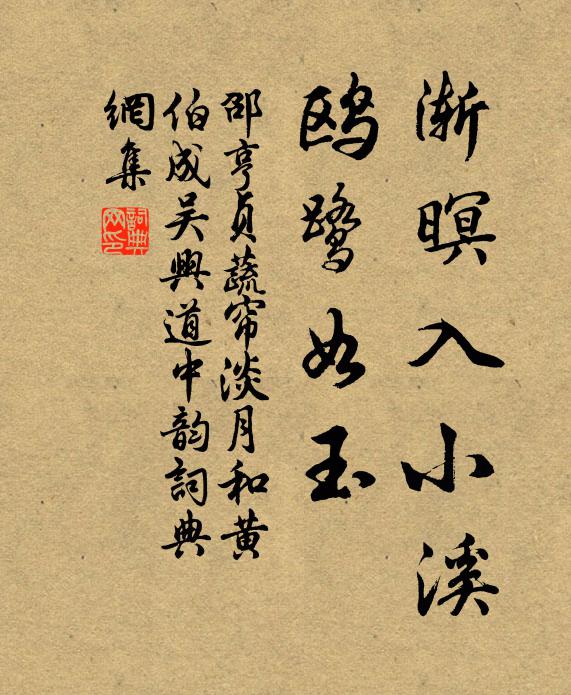 渐暝入小溪
鸥鹭如玉
邵亨貞蔬帘淡月和黄
伯成吴興道中韵詞典
網集
詞典網印